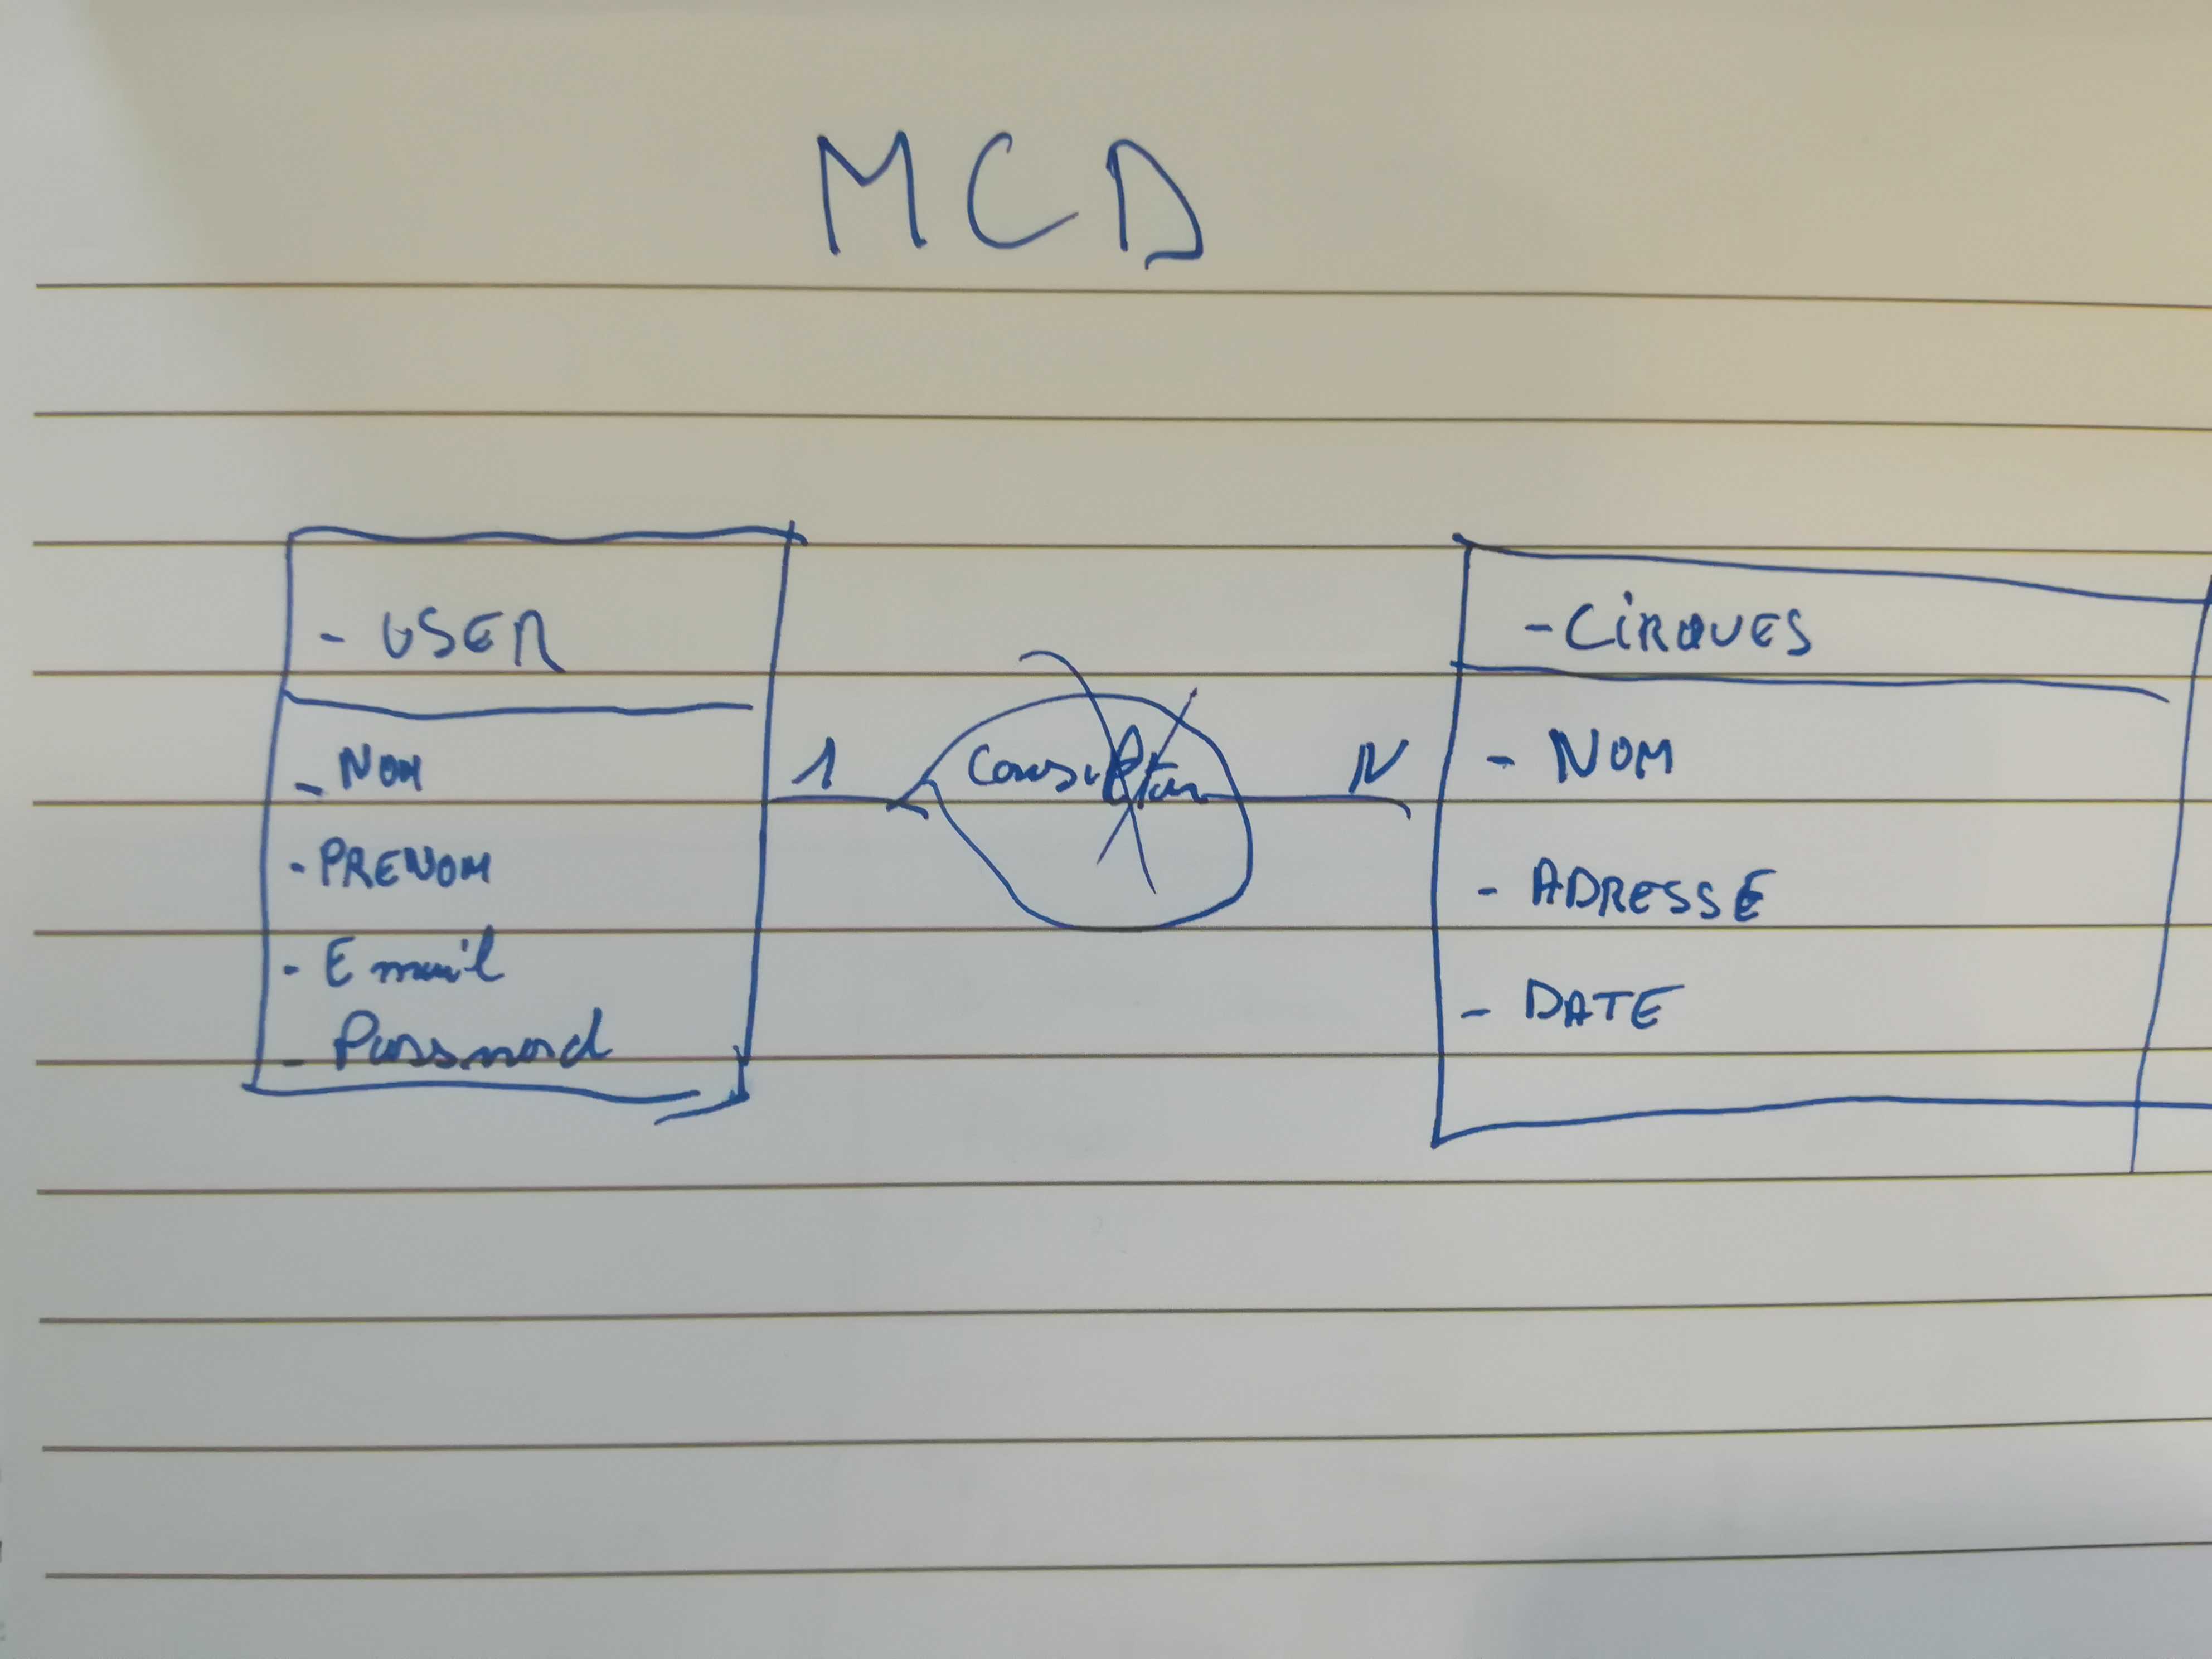 MCD
- USER
- NOM
- PRENOM
- Email
- Password
1
Consulter
N
- CIRQUES
- NOM
- ADRESSE
- DATE